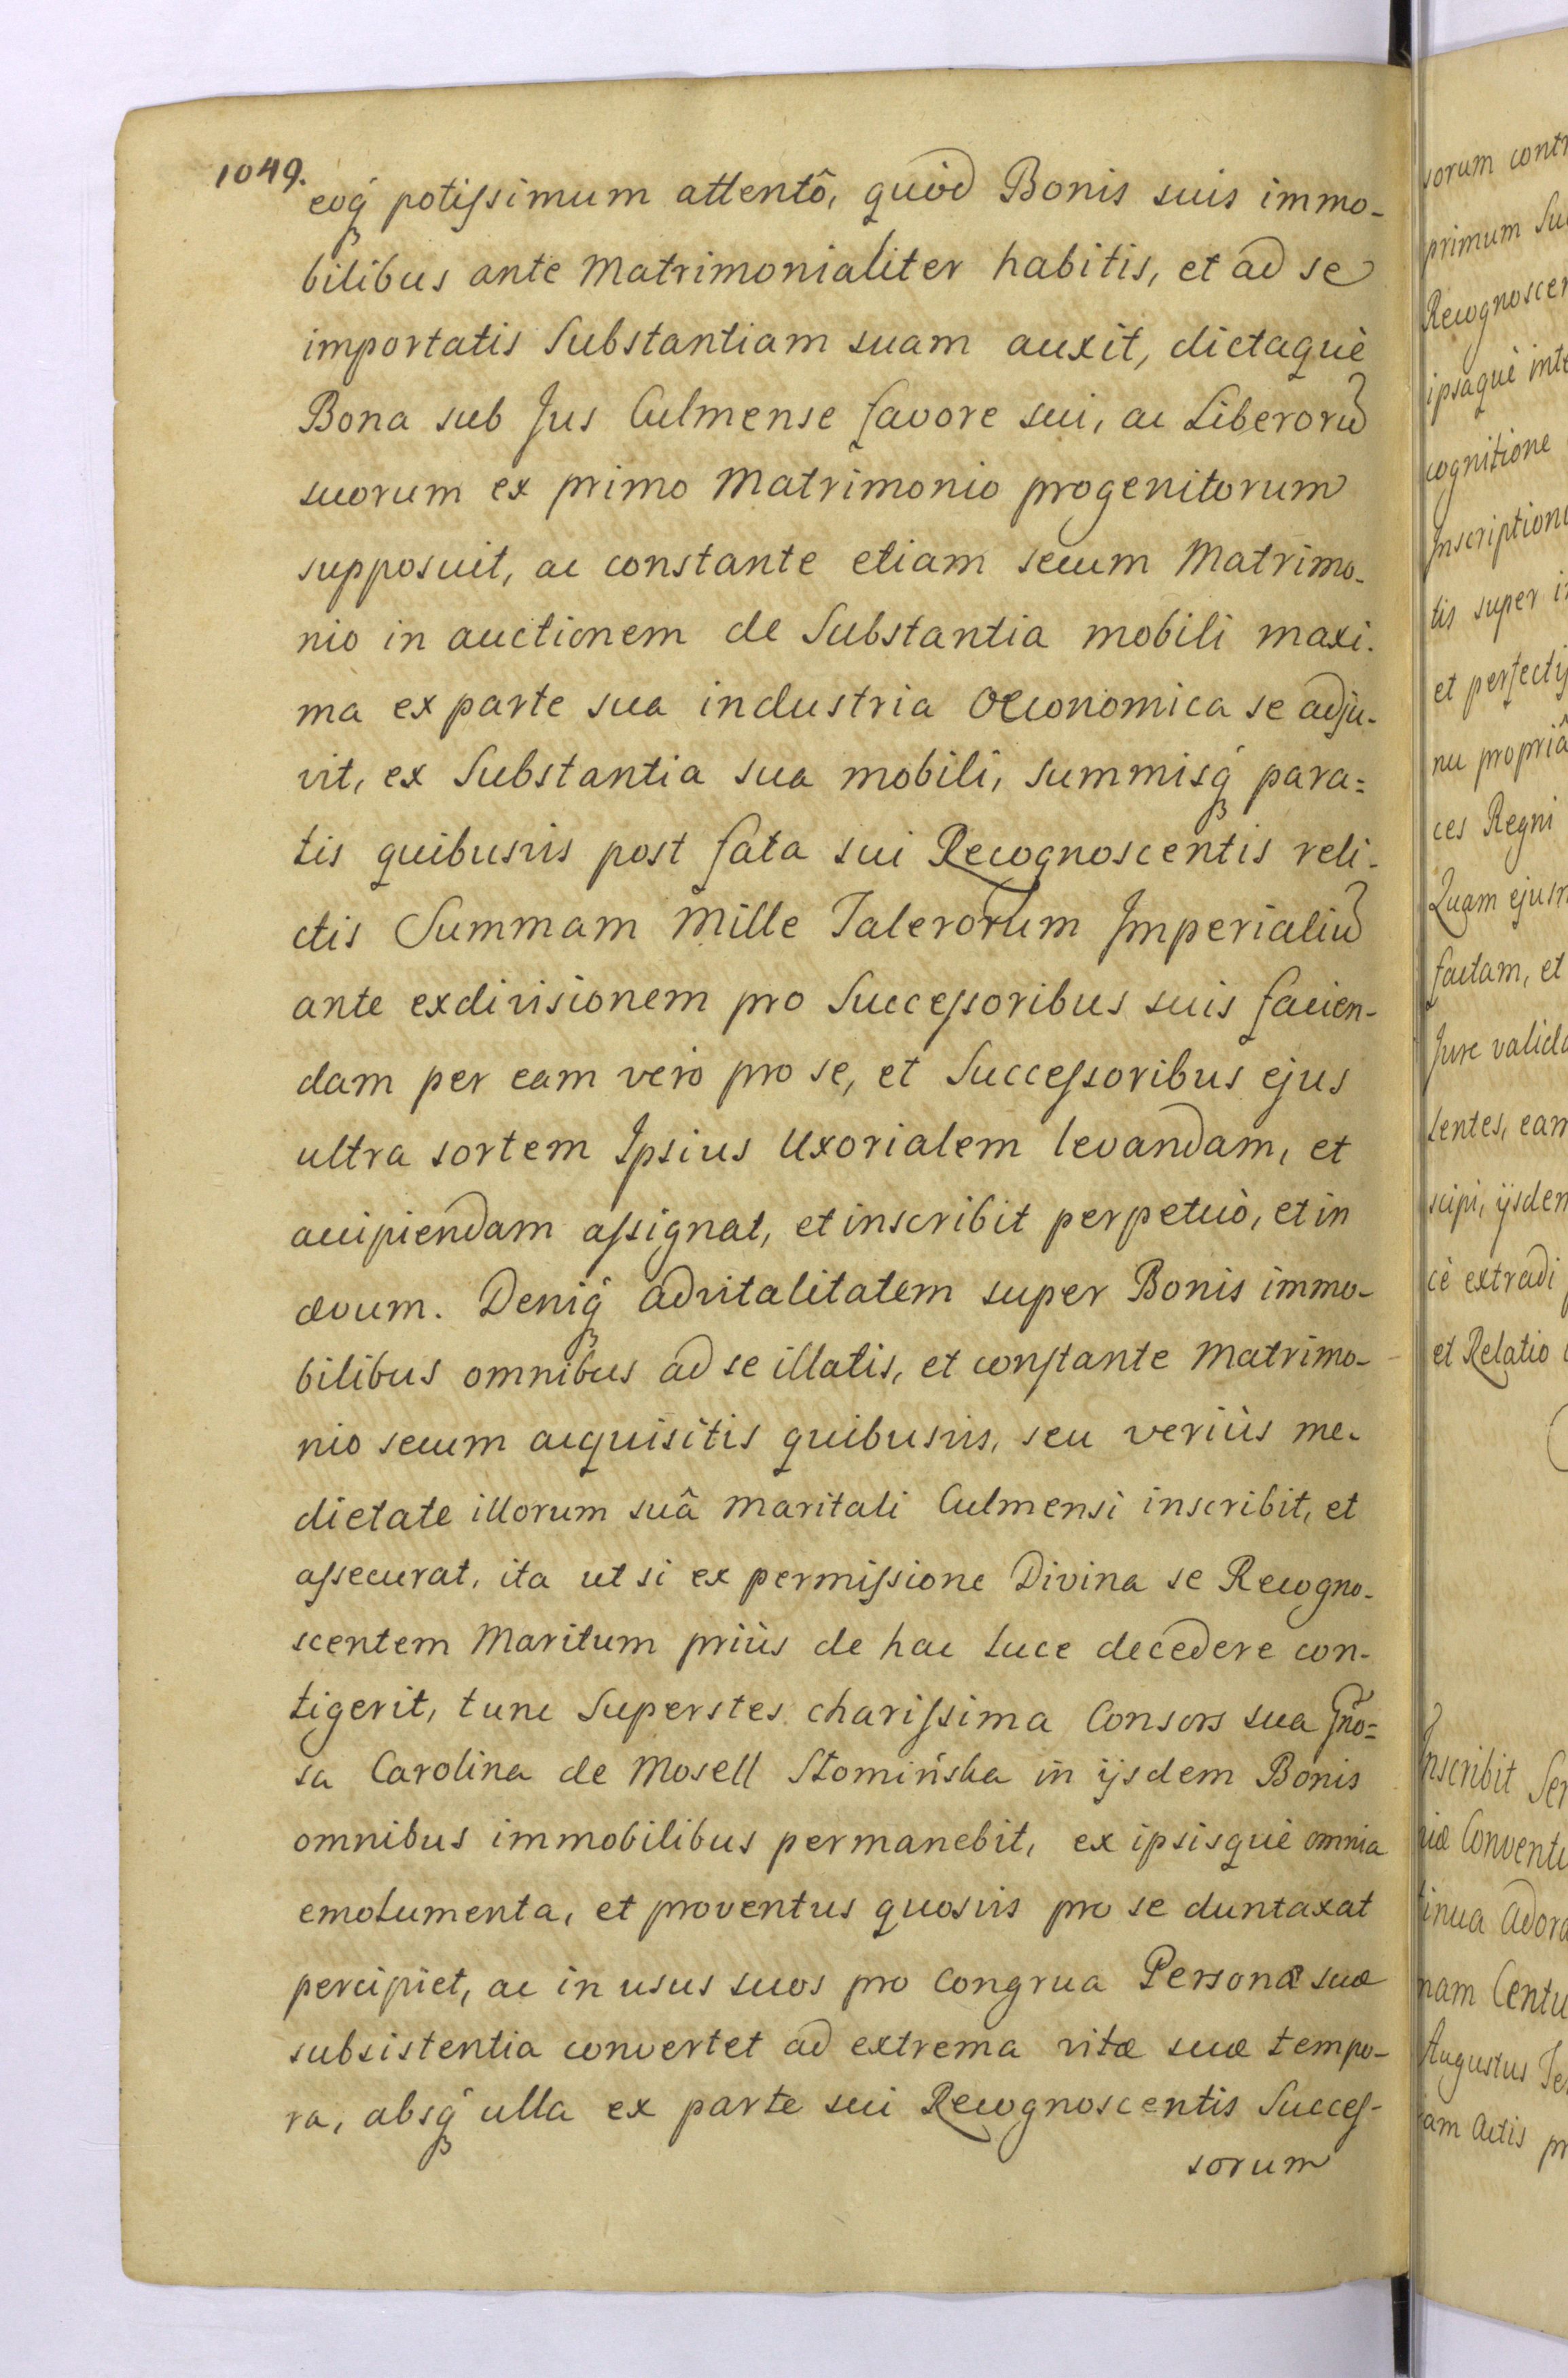 1049.
eoq́ꝫ potiſsimum attentô, quòd Bonis suis immo-
bilibus ante Matrimonialiter habitis, et ad se
importatis Substantiam suam auxit, dictaquè
Bona sub Jus Culmense favore sui, ac Liberorũ
suorum ex primo Matrimonio progenitorum
supposuit, ac constante etiam secum Matrimo-
nio in auctionem de Substantia mobili maxi-
ma ex parte sua industria Oeconomica se adju-
vit, ex Substantia sua mobili, Summisq́ꝫ para=
tis quibusvis post fata sui Recognoscentis reli-
ctis Summam Mille Talerorum Imperialiũ
ante exdivisionem pro Succeſsoribus suis facien-
dam per eam verò pro se, et Succeſsoribus ejus
ultra sortem Ipsius Uxorialem levandam, et
accipiendam aſsignat, et inscribit perpetuò, et in
ævum. Deniq́ꝫ advitalitatem super Bonis immo-
bilibus omnibus ad se illatis, et conſtante Matrimo-
nio secum acquisitis quibusvis, seu veriùs me-
dietate illorum suâ Maritali Culmensi inscribit, et
aſsecurat, ita ut si ex permiſsione Divina se Recogno-
scentem Maritum priùs de hac Luce decedere con-
tigerit, tunc Superstes chariſsima Consors sua Gño-
sa Carolina de Mosell Słomińska in ijsdem Bonis
omnibus immobilibus permanebit, ex ipsisquè omnia
emolumenta, et proventus quosvis pro se duntaxat
percipiet, ac in usus suos pro congrua Personæ suæ
subsistentia convertet ad extrema vitæ suæ tempo-
ra, absq́ꝫ ulla ex parte sui Recognoscentis Succeſ-
sorum
sorum cont
primum Su
Recognoscen
ipsaquè inte
cognitione
Inscription
tis super i
et perfecti
nu propriâ
ces Regni
Quam ejus
factam, et
Jure valid
lentes, eam
scipi, ijsdem
cè extradi
et Relatio
Inscribit Ser
iæ Conventu
tinua Adora
nam Centu
Augustus
am Actis pr